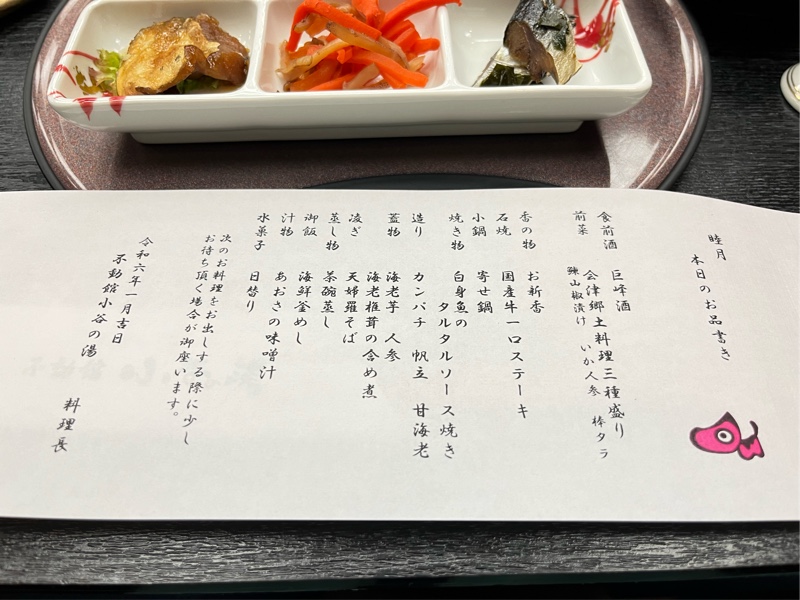 睦月 本日のお品書き
食前酒 巨峰酒
前菜 会津郷土料理三種盛り
鰊山椒漬け いか人参 棒タラ
香の物 お新香
石焼 国産牛一口ステーキ
小鍋 寄せ鍋
焼き物 白身魚の
タルタルソース焼き
造り カンパチ 帆立 甘海老
蓋物 海老芋 人参
海老椎茸の含め煮
凌ぎ 天婦羅そば
蒸し物 茶碗蒸し
御飯 海鮮釜めし
汁物 あおさの味噌汁
水菓子 日替り
次のお料理をお出しする際に少し
お待ち頂く場合が御座います。
令和六年一月吉日
不動館小谷の湯
料理長